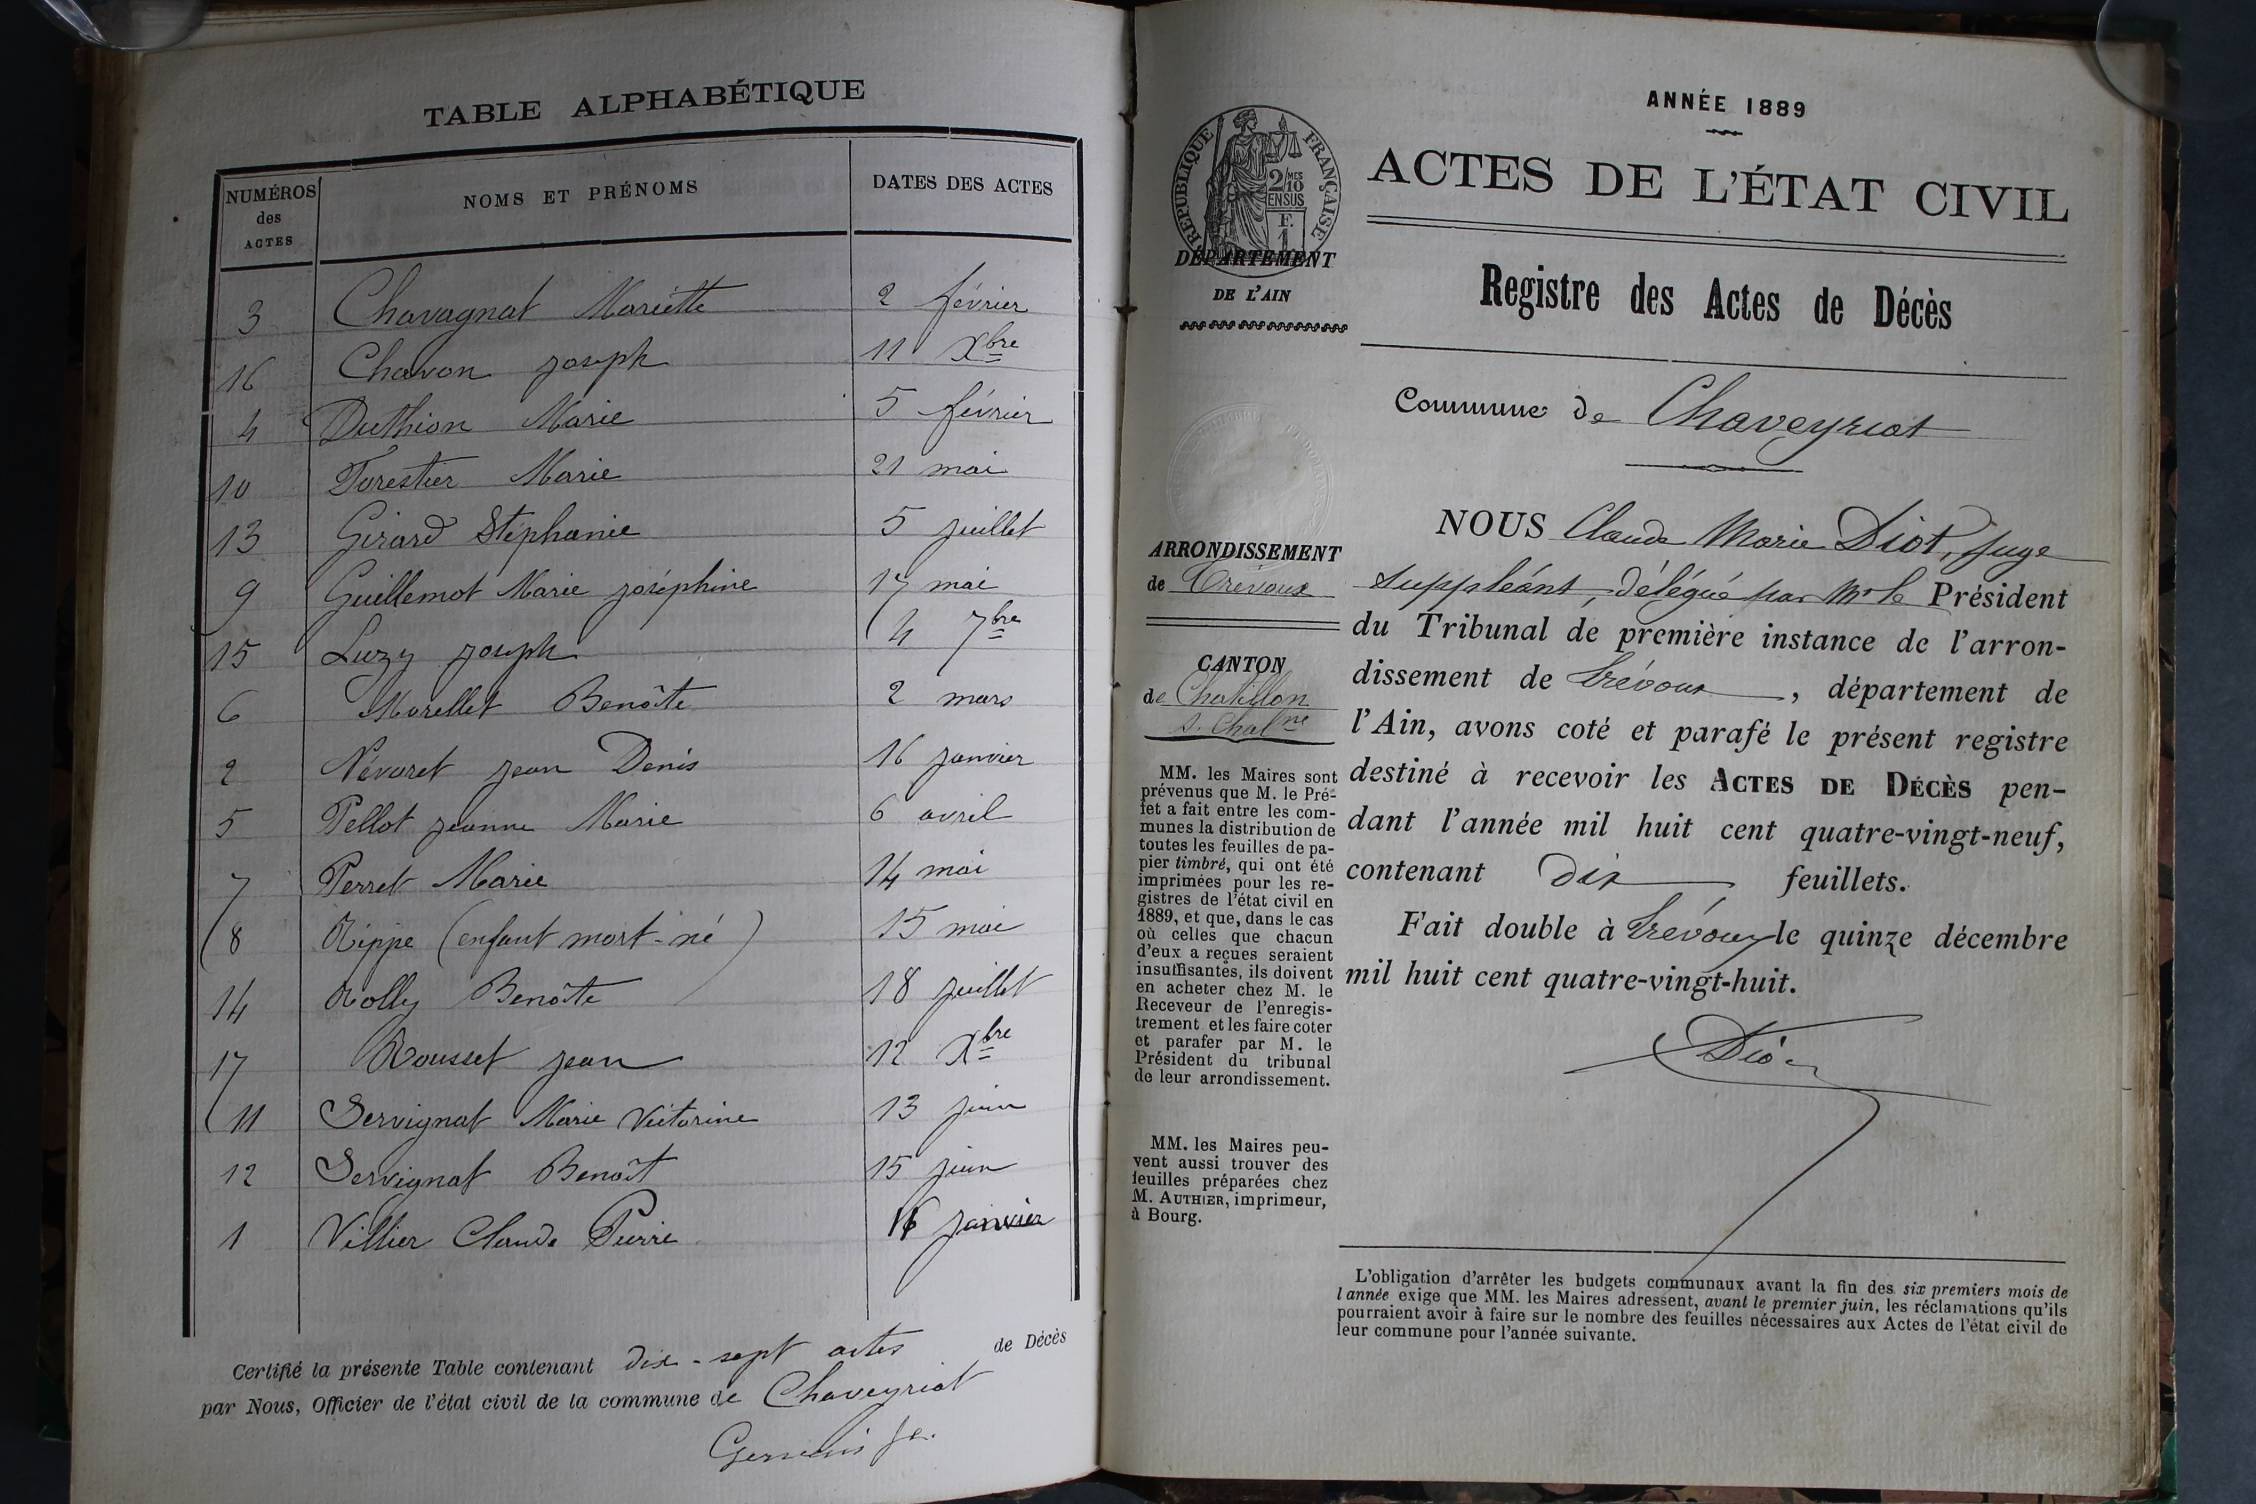 TABLE ALPHABÉTIQUE
NUMÉROS des ACTES NOMS ET PRÉNOMS DATES DES ACTES
3 Chavagnat Mariette 2 février
16 Chavon Joseph 11 Xbre
4 Duthion Marie 5 février
10 Forestier Marie 21 mai
13 Girard Stéphanie 5 juillet
9 Guillemot Marie Joséphine 17 mai
15 Luzy Joseph 4 7bre
6 Morellet Benoîte 2 mars
2 Névoret Jean Denis 16 janvier
5 Pellot Jeanne Marie 6 avril
7 Perret Marie 14 mai
8 Rippe (enfant mort-né) 15 mai
14 Rolly Benoîte 18 juillet
17 Rousset Jean 12 Xbre
11 Servignat Marie Victorine 13 juin
12 Servignat Benoît 15 juin
1 Villier Claude Pierre 16 janvier
Certifié la présente Table contenant dix-sept actes de Décès
par Nous, Officier de l'état civil de la commune de Chaveyriat
ANNÉE 1889
RÉPUBLIQUE FRANÇAISE
2/10 MES
EN SUS
F.
1
ACTES DE L'ÉTAT CIVIL
DÉPARTEMENT
DE L'AIN
Registre des Actes de Décès
Commune de Chaveyriat
ARRONDISSEMENT
de Trévoux
CANTON
de Chatillon
s. Chalne
MM. les Maires sont
prévenus que M. le Pré-
fet a fait entre les com-
munes la distribution de
toutes les feuilles de pa-
pier timbré, qui ont été
imprimées pour les re-
gistres de l'état civil en
1889, et que, dans le cas
où celles que chacun
d'eux a reçues seraient
insuffisantes, ils doivent
en acheter chez M. le
Receveur de l'enregis-
trement et les faire coter
et parafer par M. le
Président du tribunal
de leur arrondissement.
MM. les Maires peu-
vent aussi trouver des
feuilles préparées chez
M. AUTHIER, imprimeur,
à Bourg.
NOUS Claude Marie Diot, Juge
suppléant, délégué par Mr le Président
du Tribunal de première instance de l'arron-
dissement de Trévoux, département de
l'Ain, avons coté et parafé le présent registre
destiné à recevoir les ACTES DE DÉCÈS pen-
dant l'année mil huit cent quatre-vingt-neuf,
contenant dix feuillets.
Fait double à Trévoux le quinze décembre
mil huit cent quatre-vingt-huit.
Diot
L'obligation d'arrêter les budgets communaux avant la fin des six premiers mois de
l'année exige que MM. les Maires adressent, avant le premier juin, les réclamations qu'ils
pourraient avoir à faire sur le nombre des feuilles nécessaires aux Actes de l'état civil de
leur commune pour l'année suivante.